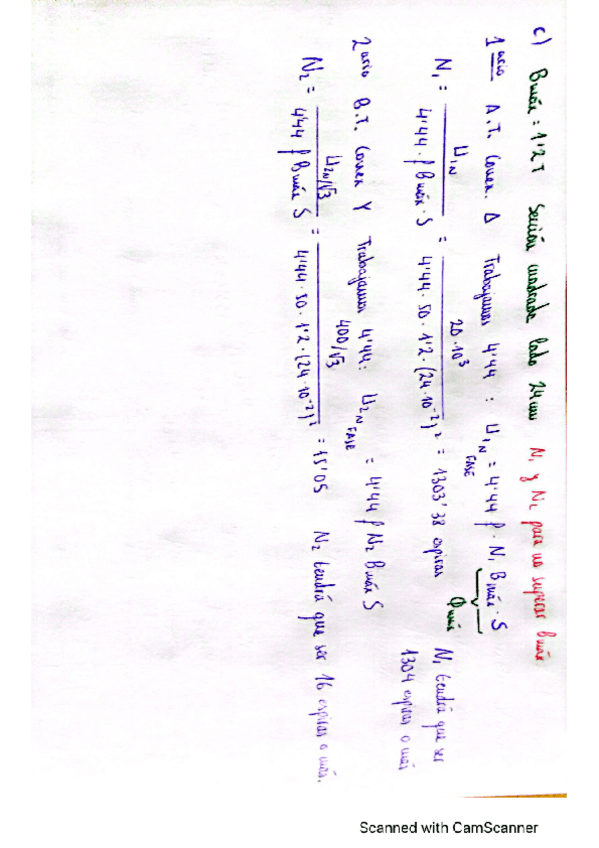 c) Bmáx = 1'2 T Sección cuadrada lado 24 cm N₁ y N₂ para no superar Bmáx
1ario A.T. Conex. Δ Trabajamos 4'44 : U₁N FASE = 4'44 f · N₁ Bmáx · S
Φmáx
N₁ = U₁N / 4'44 · f Bmáx · S = 20·10³ / 4'44 · 50 · 1'2 · (24·10⁻²)² = 1303'38 espiras N₁ tendrá que ser
1304 espiras o más
2ario B.T. Conex Y Trabajamos 4'44: U₂N FASE = 4'44 f N₂ Bmáx S
N₂ = U₂N/√3 / 4'44 f Bmáx S = 400/√3 / 4'44 · 50 · 1'2 · (24·10⁻²)² = 15'05 N₂ tendrá que ser 16 espiras o más.
Scanned with CamScanner